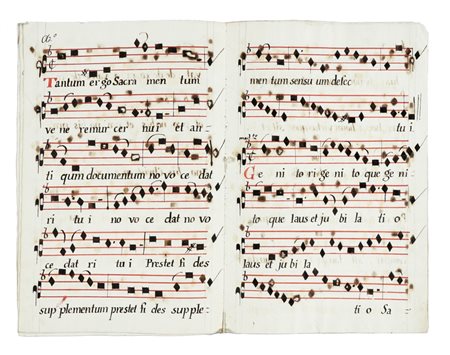 Tantum ergo Sacra men tum
ve ne remur cer nui et an-
ti qum documentum no vo ce dat
ri tu i no vo ce dat no vo
ce dat ri tu i Prestet fi des
sup plementum prestet fi des supple-
men tum sensu um defec-
tu i.
Ge ni to ri ge ni to que ge ni
to que laus et ju bi la ti o
laus et ju bi la
ti o Sa-